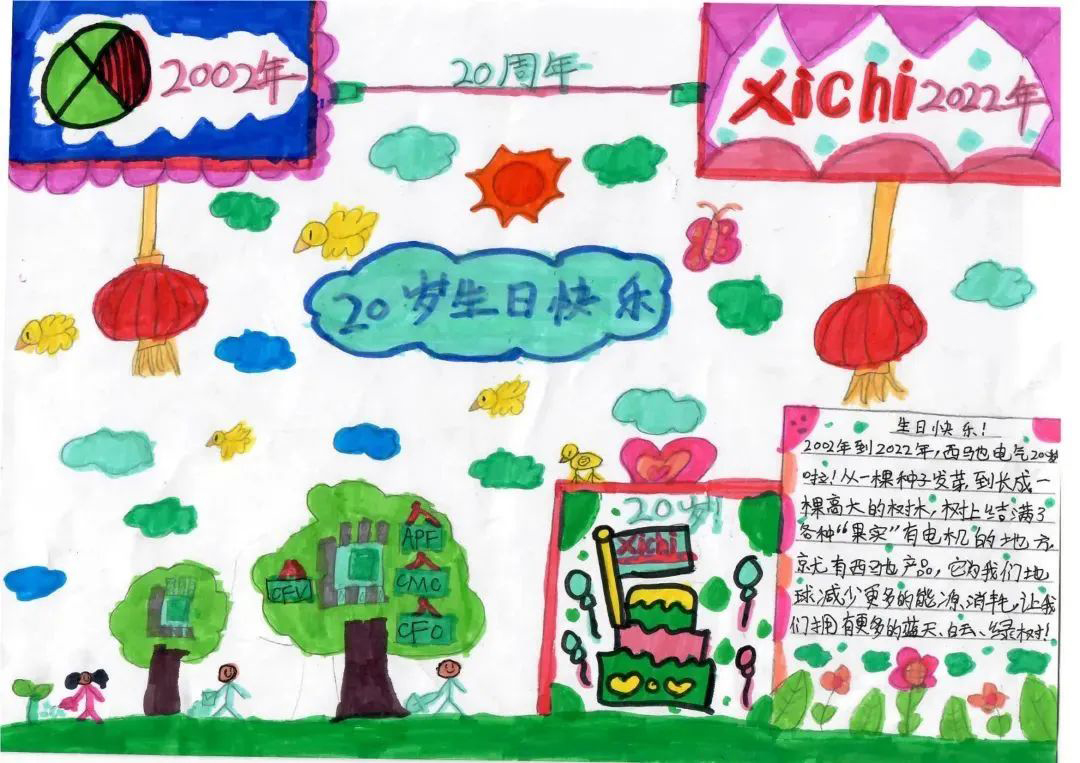 2002年
20周年
xichi 2022年
20岁生日快乐
生日快乐!
2002年到2022年,西马也电气20岁
啦!从一棵种子发芽,到长成一
棵高大的树木,树上结满了
各种“果实”有电机的地方,
京尤有西马也产品,它为我们地
球减少更多的能源消耗,让我
们拥有更多的蓝天、白云、绿树!
20岁!
xichi
APF
CMC
CFV
CFO